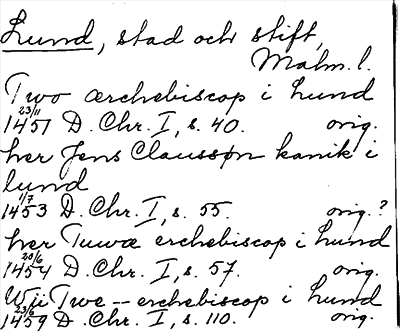 Lund, stad och stift,
Malm. l.
Two ærchebiscop i lund
23/11 1451 D. Chr. I, s. 40. orig.
her Jens Claussøn kanik i
lund
1/7 1453 D. Chr. I, s. 55. orig.?
her Tuwæ erchebiscop i lund
20/6 1454 D. Chr. I, s. 57. orig.
Wii Twe -- erchebiscop i lund
23/6 1459 D. Chr. I, s. 110. orig.